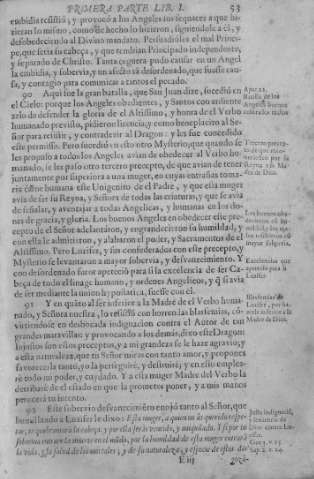 PRIMERA PARTE LIB. I. 53
embidia resistiò, y provocò à los Angeles sus sequaces à que hi-
zieran lo mismo, como de hecho lo hizieron, siguiendole à èl, y
desobedeciendo al Divino mandato. Persuadioles el mal Princi-
pe, que seria su cabeça, y que tendrian Principado independente,
y separado de Christo. Tanta ceguera pudo causar en un Angel
la embidia, y sobervia, y un afecto tã desordenado, que fuesse cau-
sa, y contagio para comunicar à tantos el pecado.
90 Aqui fue la gran batalla, que San Juan dize, sucediò en
el Cielo: porque los Angeles obedientes, y Santos con ardiente
zelo de defender la gloria de el Altissimo, y honra del Verbo
humanado previsto, pidieron licencia, y como beneplacito al Se-
ñor para resistir, y contradezir al Dragon: y les fue concedido
este permisso. Pero sucediò en esto otro Mysterio, que quando se
les propuso à todos los Angeles avian de obedecer al Verbo hu-
manado, se les puso otro tercero precepto, de que avian de tener
juntamente por superiora à una muger, en cuyas entrañas toma-
ria carne humana este Unigenito de el Padre, y que esta muger
avia de ser su Reyna, y Señora de todas las criaturas, y que se avia
de señalar, y aventajar à todas Angelicas, y humanas en los do-
nes de gracia, y gloria. Los buenos Angeles en obedecer este pre-
cepto de el Señor adelantaron, y engrandecieron su humildad, y
con ella le admitieron, y alabaron el poder, y Sacramentos de el
Altissimo. Pero Luzifer, y sus confederados con este precepto, y
Mysterio se levantaron à mayor sobervia, y desvanecimiento. Y
con desordenado furor apeteciò para si la excelencia de ser Ca-
beça de todo el linage humano, y ordenes Angelicos, y q̃ si avia
de ser mediante la union hypostatica, fuesse con èl.
91 Y en quãto al ser inferior à la Madre de el Verbo huma-
nado, y Señora nuestra, lo resistiò con horrendas blasfemias, cõ-
virtiendose en desbocada indignacion contra el Autor de tan
grandes maravillas: y provocando à los demàs, dixo este Dragon:
Injustos son estos preceptos, y à mi grandeza se le haze agravio, y
à esta naturaleza, que tu Señor miras con tanto amor, y propones
favorecerla tanto, yo la perseguirè, y destruirè; y en esto emplea-
rè todo mi poder, y cuydado. Y à esta muger Madre del Verbo la
derribarè de el estado en que la prometes poner, y à mis manos
perecerà tu intento.
92 Este sobervio desvanecimiẽto enojò tanto al Señor, que
humillando à Luzifer le dixo: Esta muger, à quien no as querido respe-
tar, te quebrantarà la cabeça, y por ella seràs vencido, y aniquilado. Y si por tu
sobervia entrare la muerte en el mũdo, por la humildad de esta muger entrarà
la vida, y la salud de los mortales, y de su naturaleza, y especie de estos dos
E iij goza-
Apoc. 12.
Batalla de los
Angeles buenos
Tercero precepto
Reyna à la Ma-
dre de Dios.
Los buenos obe-
decieron cõ hu-
mildad, y los ma-
los resistieron cõ
mayor sobervia.
Excelencia que
apeteciò para si
Luzifer.
Blasfemias de
Luzifer, por ha-
zerle inferior à la
Madre de Dios.
Justa indignaciõ,
y sentencia de
Dios contra Lu-
zifer.
Gen. 3. v. 15.
Sap. 2. v. 24.